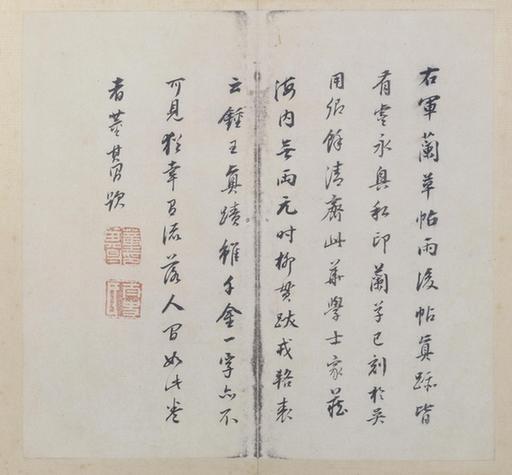 右軍蘭草帖雨後帖真跡皆
有虞永興私印蘭草已刻於吳
用卿餘清齋此華學士家藏
海內無兩元時柳貫跋戎輅表
云鍾王真蹟雖千金一字亦不
可見猶幸流落人間如此卷
者董其昌題